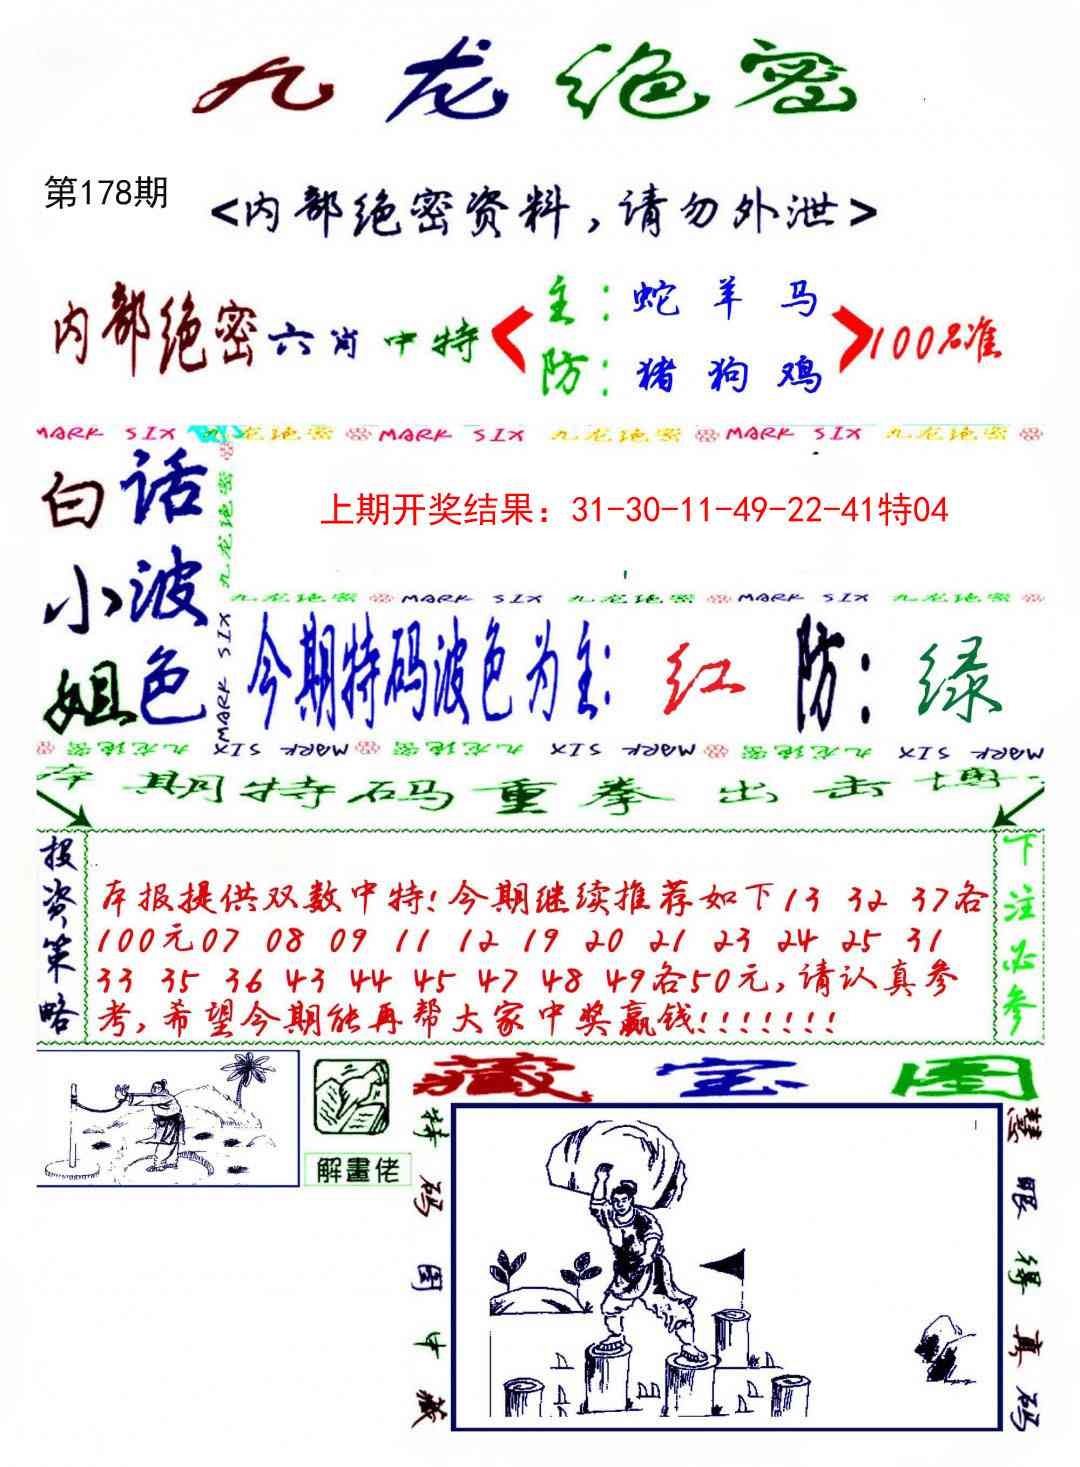 九龙绝密
第178期
<内部绝密资料，请勿外泄>
内部绝密六肖中特
主：蛇 羊 马
防：猪 狗 鸡
100%准
MARK SIX 九龙绝密 MARK SIX 九龙绝密 MARK SIX 九龙绝密
白话
小波
姐色
九龙绝密 MARK SIX
上期开奖结果：31-30-11-49-22-41特04
九龙绝密 MARK SIX 九龙绝密 MARK SIX 九龙绝密
今期特码波色为主：红 防：绿
九龙绝密 MARK SIX 九龙绝密 MARK SIX 九龙绝密 MARK SIX
本期特码重拳出击博
投资策略
本报提供双数中特!今期继续推荐如下13 32 37各
100元07 08 09 11 12 19 20 21 23 24 25 31
33 35 36 43 44 45 47 48 49各50元,请认真参
考,希望今期能再帮大家中奖赢钱!!!!!!!
下注必参
解畫佬
藏宝图
特码图中藏
慧眼得真码